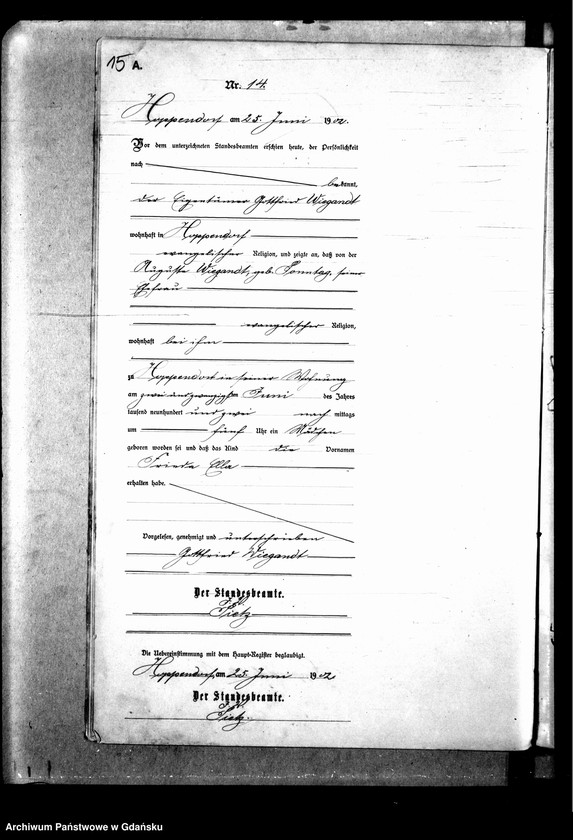 15 A.
Nr. 14.
Hoppendorf am 25. Juni 1902.
Vor dem unterzeichneten Standesbeamten erschien heute, der Persönlichkeit
nach
bekannt,
der Eigentümer Gottfried Wiegandt
wohnhaft in Hoppendorf
evangelischer Religion, und zeigte an, daß von der
Auguste Wiegandt, geb. Sonntag, seiner
Ehefrau
evangelischer Religion,
wohnhaft bei ihm
zu Hoppendorf in seiner Wohnung
am zwei und zwanzigsten Juni des Jahres
tausend neunhundert und zwei nach mittags
um fünf Uhr ein Mädchen
geboren worden sei und daß das Kind die Vornamen
Frieda Ella
erhalten habe.
Vorgelesen, genehmigt und unterschrieben
Gottfried Wiegandt
Der Standesbeamte.
Tietz
Die Uebereinstimmung mit dem Haupt-Register beglaubigt.
Hoppendorf, am 25. Juni 1902
Der Standesbeamte.
Tietz.
Archiwum Państwowe w Gdańsku